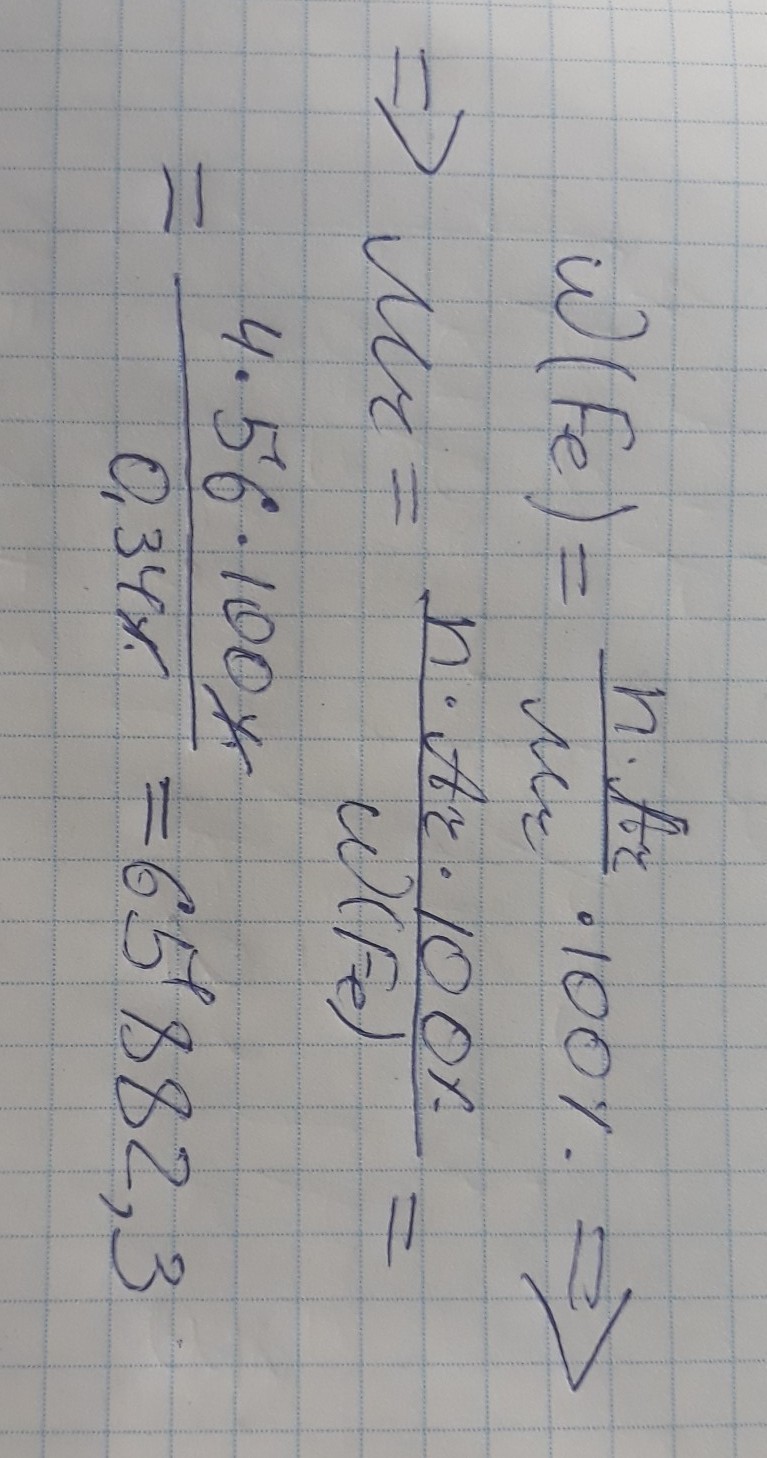 w(Fe) = n·Ar / Mr · 100% ⇒
⇒ Mr = n·Ar·100% / w(Fe) =
= 4·56·100% / 0,34% = 65882,3